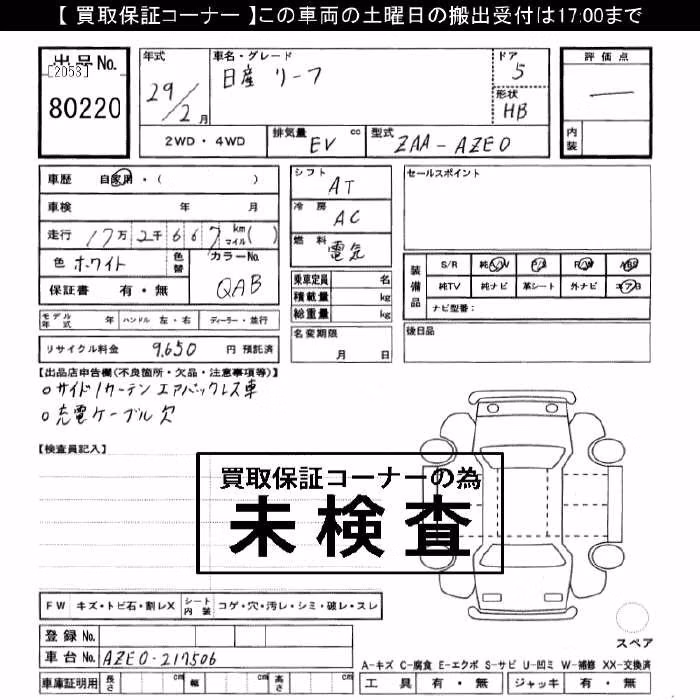 【 買取保証コーナー 】この車両の土曜日の搬出受付は17:00まで
出品No.
[2053]
80220
年式
29/2月
車名・グレード
日産 リーフ
ドア
5
形状
HB
評価点
—
内装
2WD・4WD
排気量 EV cc
型式 ZAA-AZE0
車歴 自家用・( )
車検 年 月
走行 17万 2千 6 6 7 km マイル( )
色 ホワイト 色替
カラーNo. QAB
保証書 有・無
シフト AT
冷房 AC
燃料 電気
乗車定員 名
積載量 kg
総重量 kg
セールスポイント
装備品
S/R 純 P/S P/W ABS
純TV 純ナビ 革シート 外ナビ エアB
ナビ型番:
モデル年式 年 ハンドル 左・右 ディーラー・並行
名変期限
月 日
後日品
リサイクル料金 9,650 円 預託済
【出品店申告欄(不良箇所・欠品・注意事項等)】
○サイド/カーテン エアバックレス車
○充電ケーブル欠
【検査員記入】
買取保証コーナーの為
未検査
FW キズ・トビ石・割レX シート内装 コゲ・穴・汚レ・シミ・破レ・スレ
スペア
登録No.
車台No. AZE0-217506
A-キズ C-腐食 E-エクボ S-サビ U-凹ミ W-補修 XX-交換済
車庫証明用 長さ cm 幅 cm 高さ cm
工具 有・無 ジャッキ 有・無